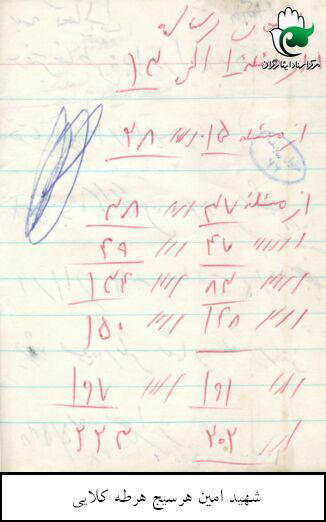 مرکز اسناد ایثارگران
رساله
از مسئله ۱ الی ۱۳
از مسئله ۱۵ 〃 ۲۸
از مسئله ۳۷ 〃 ۳۸
〃 ۴۶ 〃 ۴۹
〃 ۸۳ 〃 ۱۳۴
〃 ۱۴۸ 〃 ۱۵۰
〃 ۱۹۱ 〃 ۱۹۷
〃 ۲۰۲ ۲۲۳
شهید امین هرسیج هرطه کلایی